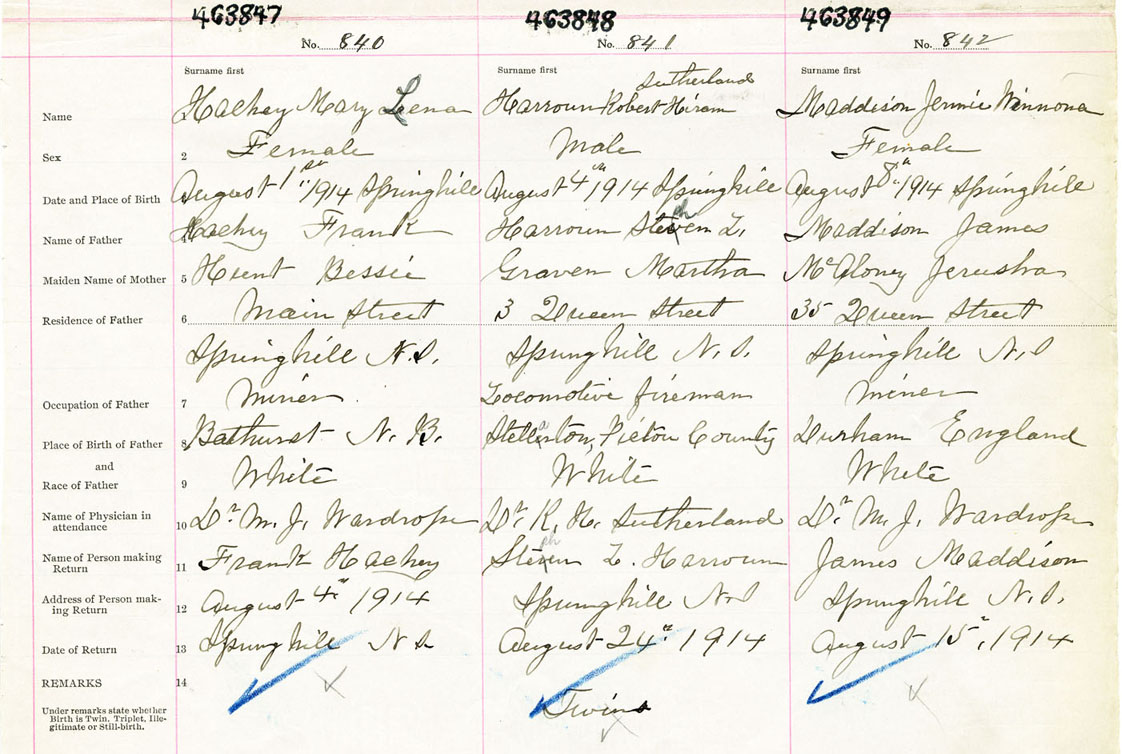 463847 463848 463849
No. 840 No. 841 No. 842
Surname first Surname first Surname first
Sutherland
Name Hachey Mary Leena Harroun Robert Hiram Maddison Jennie Winnona
Sex 2 Female Male Female
Date and Place of Birth August 1st 1914 Springhill August 4th 1914 Springhill August 8th 1914 Springhill
Name of Father 4 Hachey Frank Harroun Steven L. Maddison James
ph
Maiden Name of Mother 5 Hunt Bessie Graven Martha McAloney Jerusha
Residence of Father 6 Main Street 3 Queen Street 35 Queen Street
Springhill N.S. Springhill N.S. Springhill N.S
Occupation of Father 7 Miner Locomotive fireman Miner
Place of Birth of Father 8 Bathurst N.B. Stellarton, Pictou County Durham England
and
Race of Father 9 White White White
Name of Physician in attendance 10 Dr. M. J. Wardrope Dr. K. H. Sutherland Dr. M. J. Wardrope
ph
Name of Person making Return 11 Frank Hachey Steven L. Harroun James Maddison
Address of Person making Return 12 August 4th 1914 Springhill N.S Springhill N.S.
Date of Return 13 Springhill N S August 24th 1914 August 15th, 1914
REMARKS 14
Under remarks state whether Birth is Twin, Triplet, Illegitimate or Still-birth. Twins